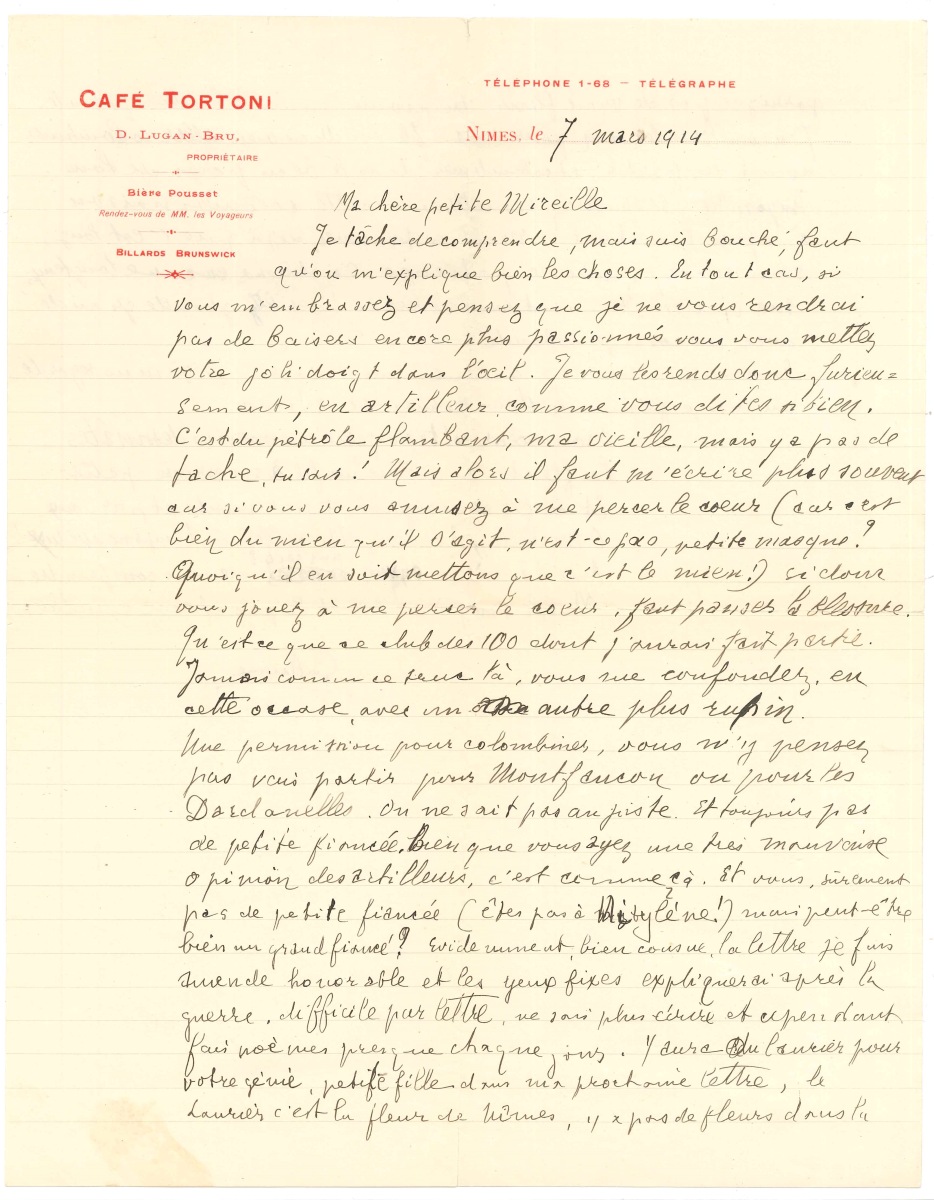 TÉLEPHONE 1-68 — TÉLÉGRAPHE
CAFÉ TORTONI
D. LUGAN-BRU,
PROPRIÉTAIRE
NIMES, le 7 mars 1914
Bière Pousset
Rendez-vous de MM. les Voyageurs
BILLARDS BRUNSWICK
Ma chère petite Mireille
Je tâche de comprendre, mais suis bouché, faut
qu'on m'explique bien les choses. En tout cas, si
vous m'embrassez et pensez que je ne vous rendrai
pas de baisers encore plus passionnés vous vous mettez
votre joli doigt dans l'œil. Je vous les rends donc, furieu=
sement, en artilleur comme vous dites si bien.
C'est du pétrôle flambant, ma vieille, mais y a pas de
tache, tu sais! Mais alors il faut m'écrire plus souvent
car si vous vous amusez à me percer le coeur (car c'est
bien du mien qu'il s'agit, n'est-ce pas, petite masque?
Quoiqu'il en soit mettons que c'est le mien!) si donc
vous jouez à me percer le coeur, faut panser la blessure.
Qu'est ce que ce club des 100 dont j'aurais fait partie.
Jamais connu ce truc là, vous me confondez, en
cette occase, avec un autre plus rupin.
Une permission pour colombiner, vous n'y pensez
pas vais partir pour Montfaucon ou pour les
Dardanelles. On ne sait pas au juste. Et toujours pas
de petite fiancée, bien que vous ayez une très mauvaise
opinion des artilleurs, c'est comme çà. Et vous, sûrement
pas de petite fiancée (êtes pas à Mitylène!) mais peut-être
bien un grand fiancé? Evidemment, bien cousue, la lettre je fais
amende honorable et les yeux fixes expliquerai après la
guerre, difficile par lettre, ne sais plus écrire et cependant
fais poèmes presque chaque jour. Y aura du laurier pour
votre génie, petite fille dans ma prochaine lettre, le
laurier c'est la fleur de Nîmes, y a pas de fleurs dans la